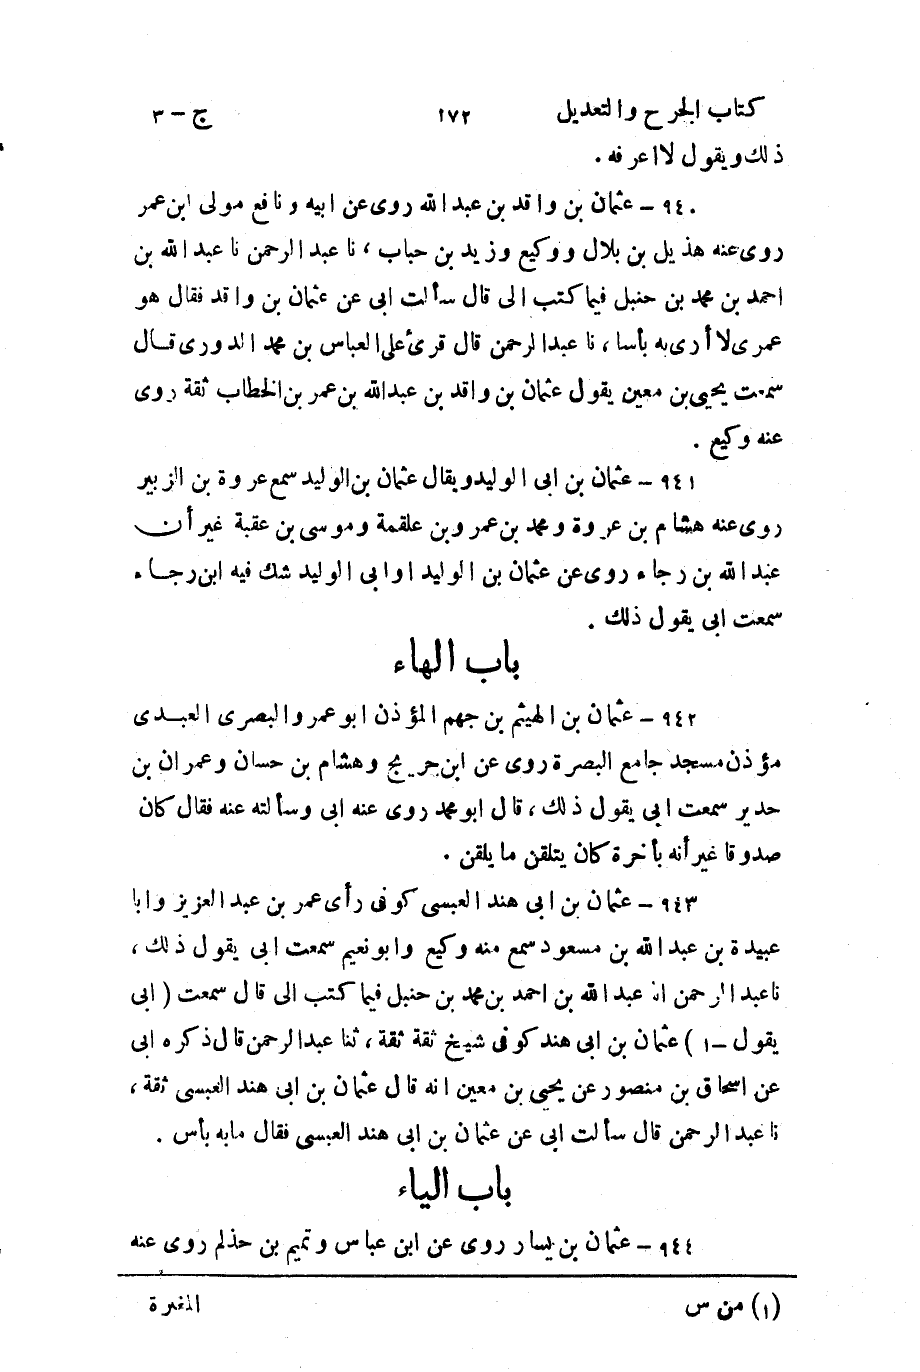 كتاب الجرح والتعديل ١٧٢ ج - ٣
ذلك ويقول لا اعرفه .
٩٤٠ - عثمان بن واقد بن عبد الله روى عن ابيه ونافع مولى ابن عمر
روى عنه هذيل بن بلال ووكيع وزيد بن حباب ، نا عبد الرحمن نا عبد الله بن
احمد بن محمد بن حنبل فيما كتب الى قال سألت ابى عن عثمان بن واقد فقال هو
عمرى لا أرى به بأسا ، نا عبد الرحمن قال قرئ على العباس بن محمد الدورى قال
سمعت يحيى بن معين يقول عثمان بن واقد بن عبد الله بن عمر بن الخطاب ثقة روى
عنه وكيع .
٩٤١ - عثمان بن ابى الوليد ويقال عثمان بن الوليد سمع عروة بن الزبير
روى عنه هشام بن عروة ومحمد بن عمرو بن علقمة وموسى بن عقبة غير أن
عبد الله بن رجاء روى عن عثمان بن الوليد او ابى الوليد شك فيه ابن رجاء
سمعت ابى يقول ذلك .
باب الهاء
٩٤٢ - عثمان بن الهيثم بن جهم المؤذن ابو عمرو البصرى العبدى
مؤذن مسجد جامع البصرة روى عن ابن جريج وهشام بن حسان وعمران بن
حدير سمعت ابى يقول ذلك ، قال ابو محمد روى عنه ابى وسألته عنه فقال كان
صدوقا غير أنه بأخرة كان يتلقن ما يلقن .
٩٤٣ - عثمان بن ابى هند العبسى كوفى رأى عمر بن عبد العزيز وابا
عبيدة بن عبد الله بن مسعود سمع منه وكيع وابو نعيم سمعت ابى يقول ذلك ،
نا عبد الرحمن انا عبد الله بن احمد بن محمد بن حنبل فيما كتب الى قال سمعت ( ابى
يقول - ١ ) عثمان بن ابى هند كوفى شيخ ثقة ثقة ، ثنا عبد الرحمن قال ذكره ابى
عن اسحاق بن منصور عن يحيى بن معين انه قال عثمان بن ابى هند العبسى ثقة ،
نا عبد الرحمن قال سألت ابى عن عثمان بن ابى هند العبسى فقال ما به بأس .
باب الياء
٩٤٤ - عثمان بن يسار روى عن ابن عباس وتميم بن حذلم روى عنه
(١) من س المغيرة